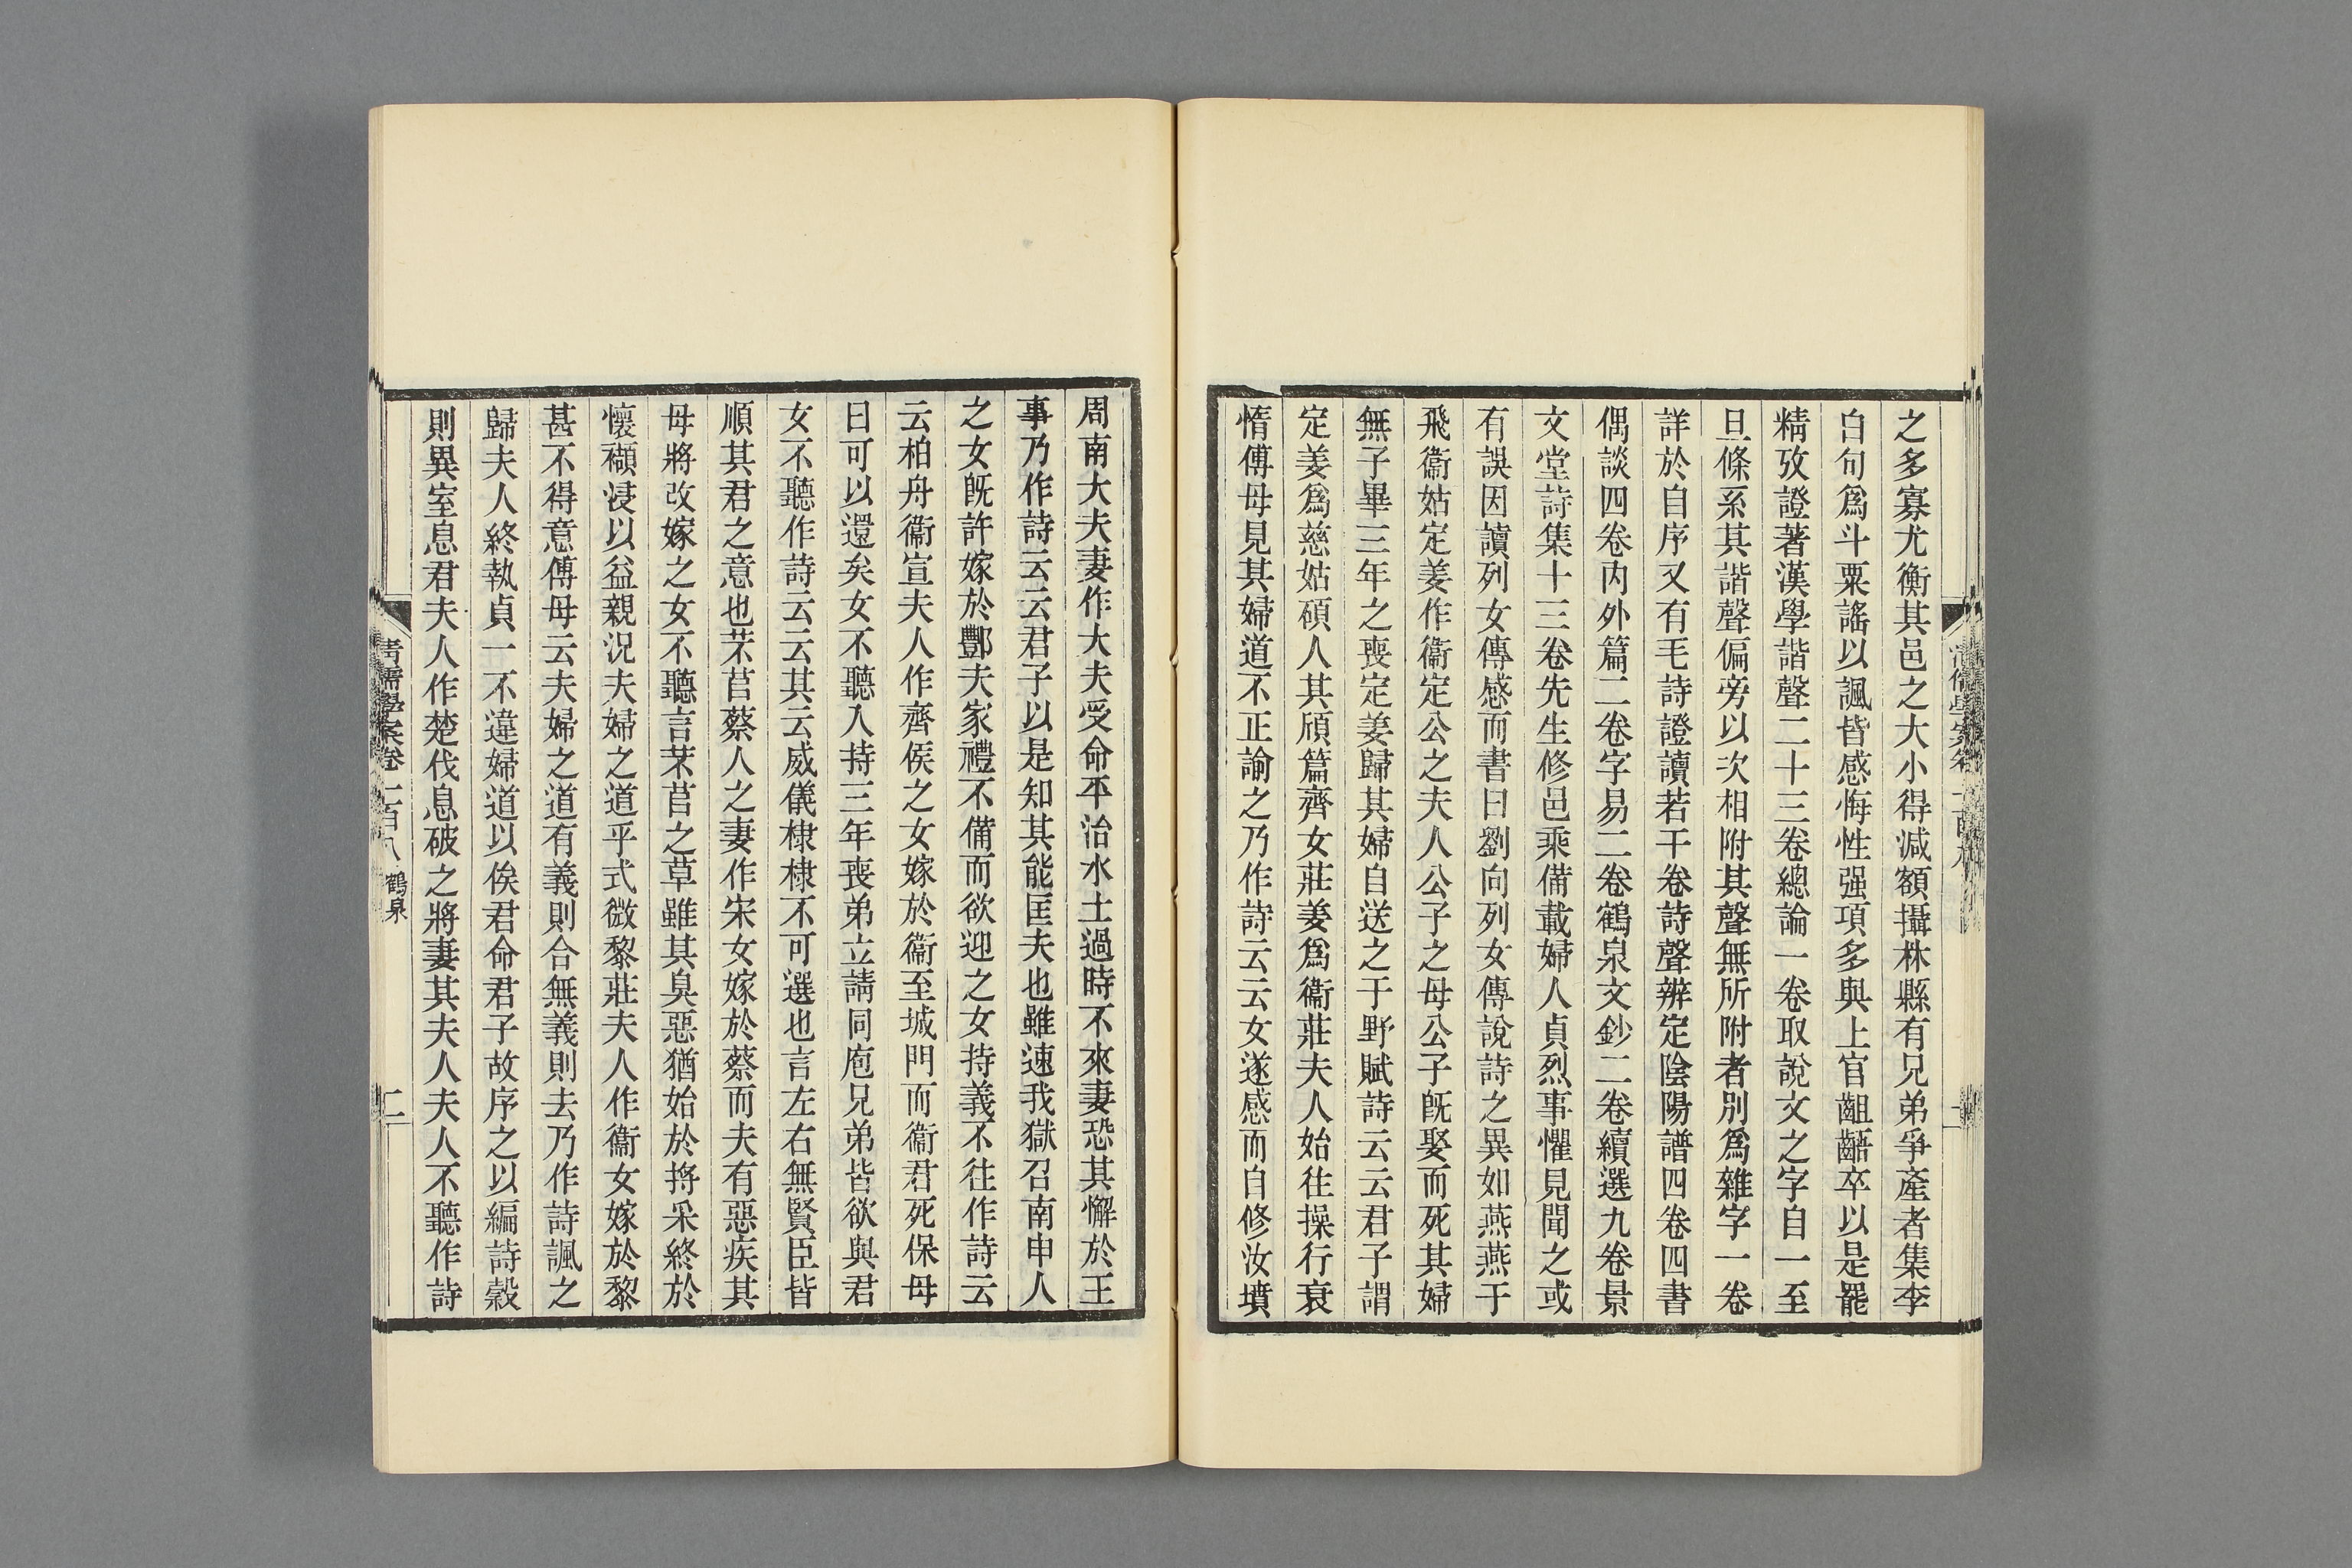 之多寡尤衡其邑之大小得減額攝林縣有兄弟爭產者集李
白句爲斗粟謠以諷皆感悔性强項多與上官齟齬卒以是罷
精攷證著漢學諧聲二十三卷總論一卷取說文之字自一至
旦條系其諧聲偏旁以次相附其聲無所附者別爲雜字一卷
詳於自序又有毛詩證讀若干卷詩聲辨定陰陽譜四卷四書
偶談四卷內外篇二卷字易二卷鶴泉文鈔二卷續選九卷景
文堂詩集十三卷先生修邑乘備載婦人貞烈事懼見聞之或
有誤因讀列女傳感而書曰劉向列女傳說詩之異如燕燕于
飛衞姑定姜作衞定公之夫人公子之母公子旣娶而死其婦
無子畢三年之喪定姜歸其婦自送之于野賦詩云云君子謂
定姜爲慈姑碩人其頎篇齊女莊姜爲衞莊夫人始往操行衰
惰傅母見其婦道不正諭之乃作詩云云女遂感而自修汝墳
周南大夫妻作大夫受命平治水土過時不來妻恐其懈於王
事乃作詩云云君子以是知其能匡夫也雖速我獄召南申人
之女旣許嫁於酆夫家禮不備而欲迎之女持義不往作詩云
云柏舟衞宣夫人作齊侯之女嫁於衞至城門而衞君死保母
曰可以還矣女不聽入持三年喪弟立請同庖兄弟皆欲與君
女不聽作詩云云其云威儀棣棣不可選也言左右無賢臣皆
順其君之意也芣苢蔡人之妻作宋女嫁於蔡而夫有惡疾其
母將改嫁之女不聽言芣苢之草雖其臭惡猶始於捋采終於
懷襭浸以益親況夫婦之道乎式微黎莊夫人作衞女嫁於黎
甚不得意傅母云夫婦之道有義則合無義則去乃作詩諷之
歸夫人終執貞一不違婦道以俟君命君子故序之以編詩穀
則異室息君夫人作楚伐息破之將妻其夫人夫人不聽作詩
清儒學案卷一百八 鶴泉 二